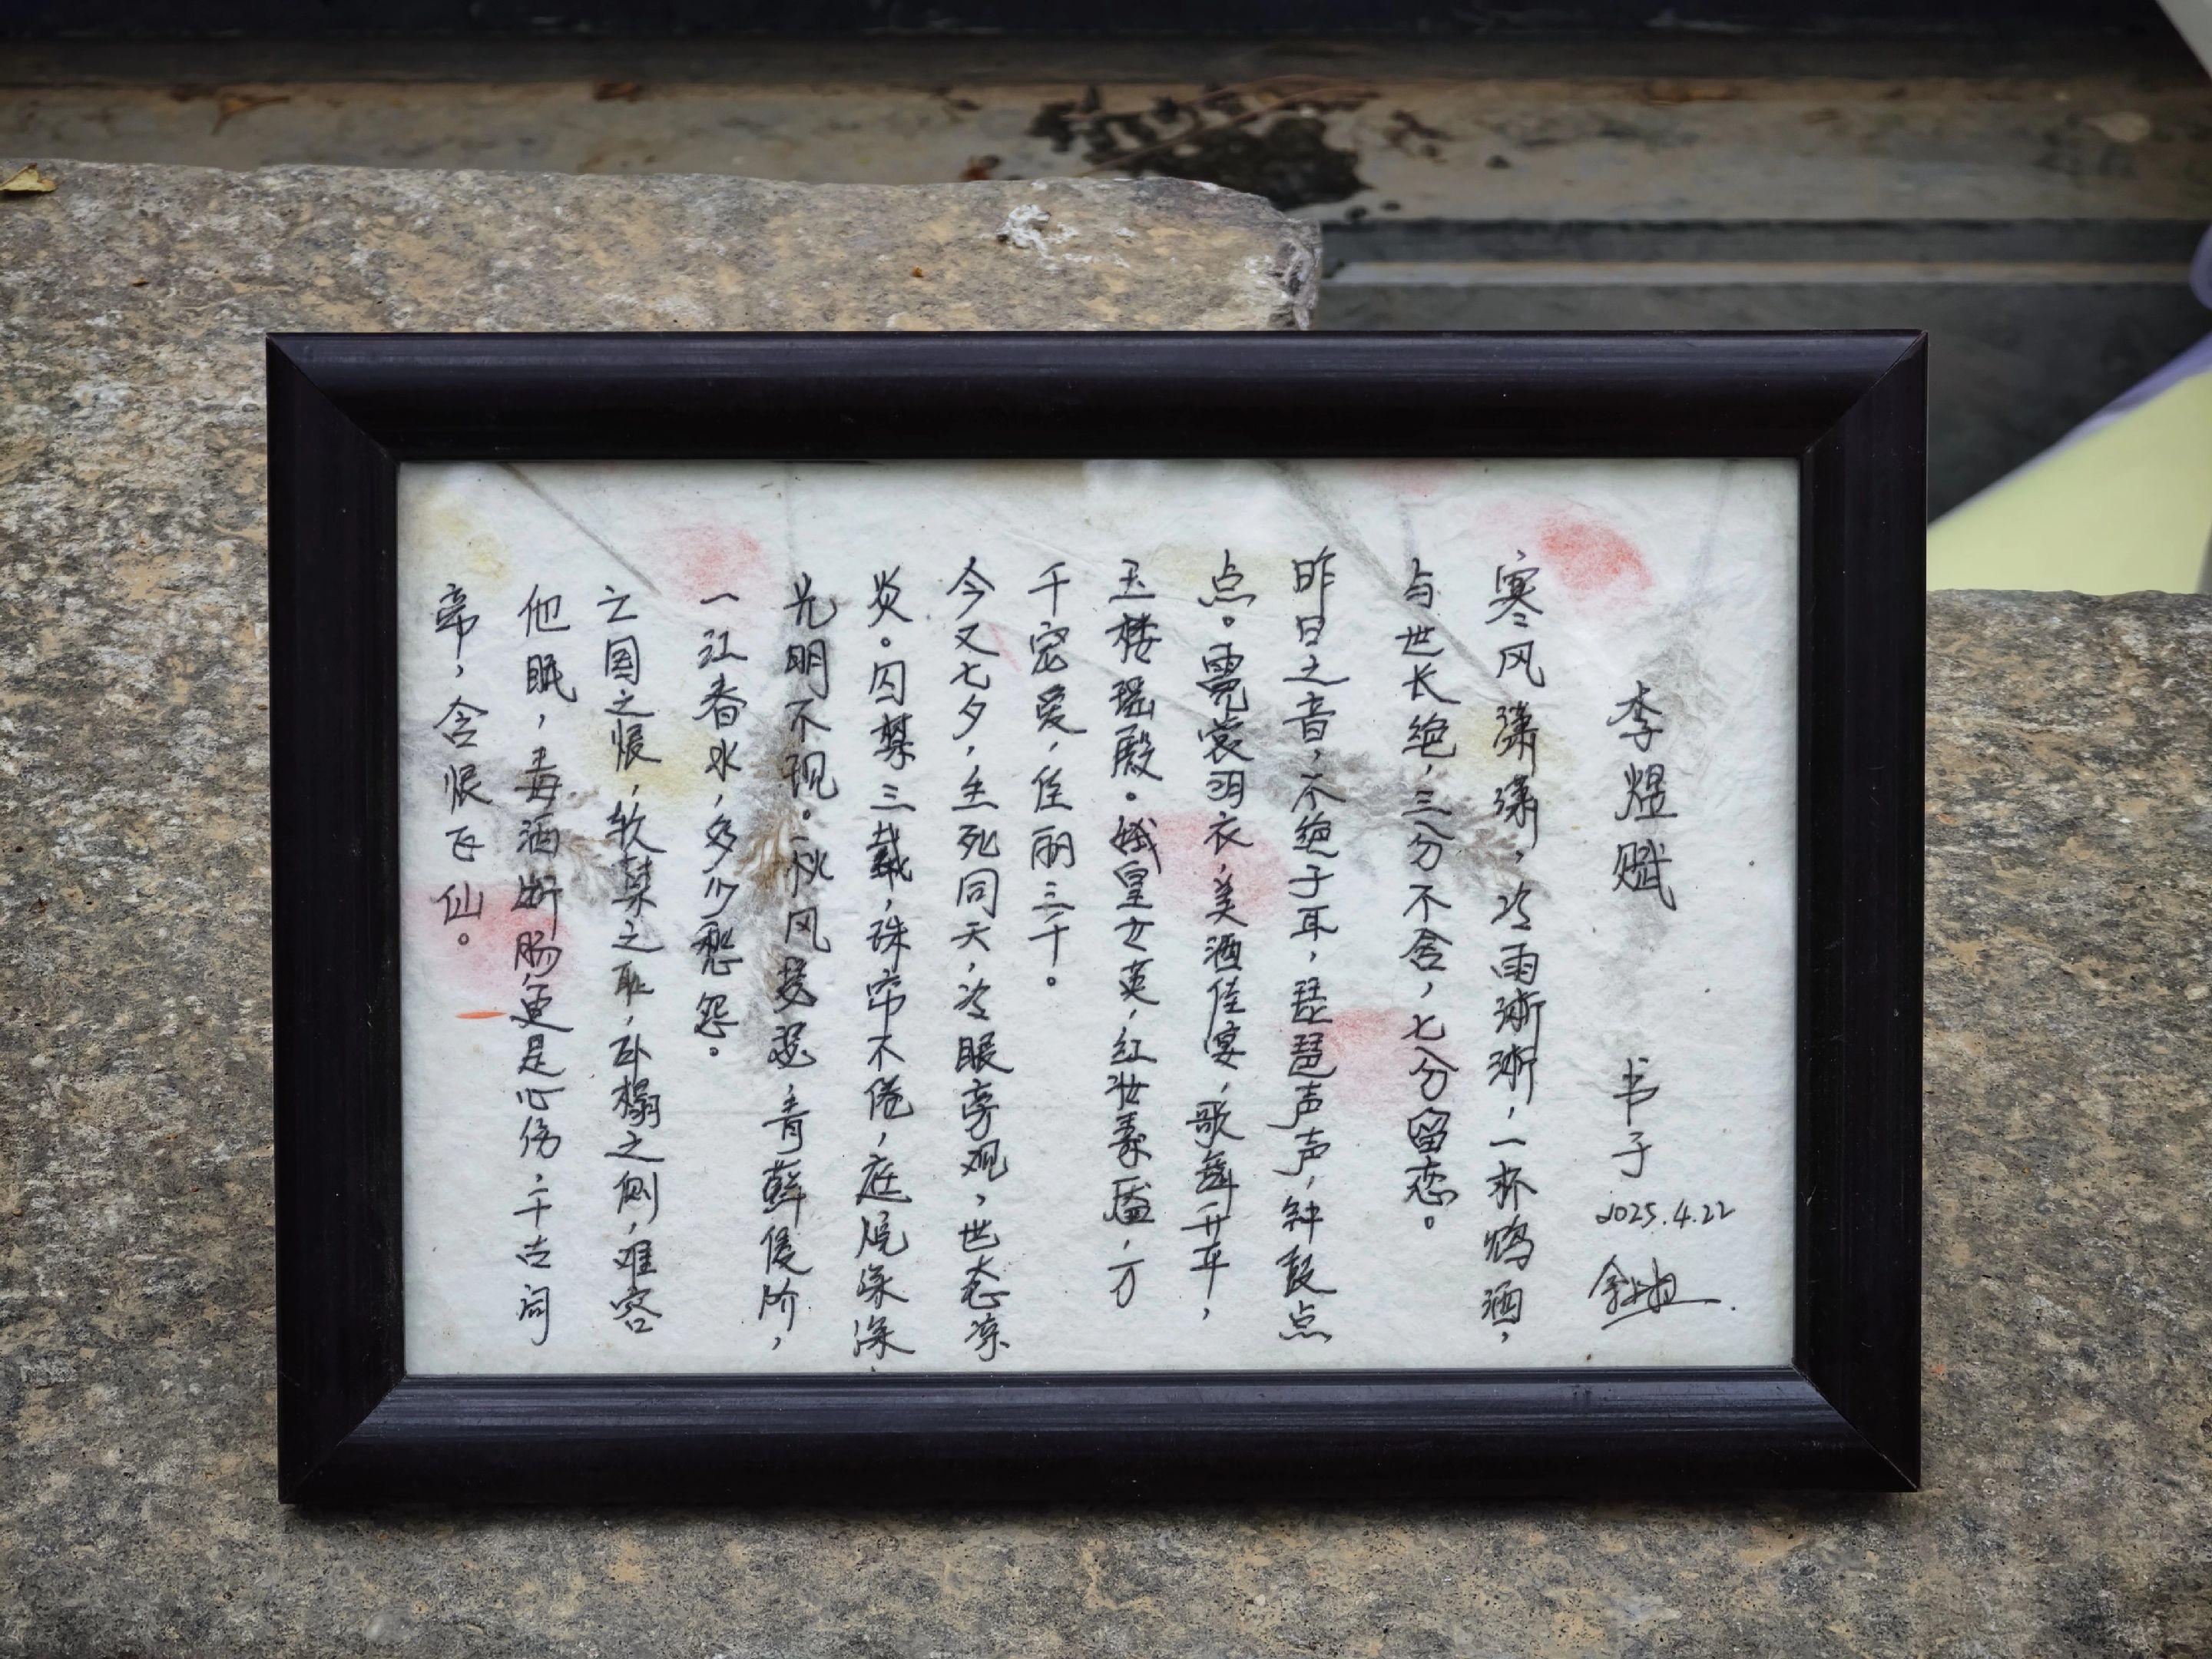 李煜赋 书子
2025.4.22
寒风潇潇，冷雨淅淅，一杯鸩酒，
与世长绝，三分不舍，七分留恋。
昨日之音，不绝于耳，琵琶声声，钟鼓点
点。霓裳羽衣，美酒佳宴，歌舞升平，
玉楼瑶殿。娥皇女英，红妆素靥，万
千宠爱，佳丽三千。
今又七夕，生死同天，冷眼旁观，世态凉
炎。囚禁三载，珠帘不倦，庭院深深，
光明不现。秋风瑟瑟，青藓侵阶，
一江春水，多少愁怨。
亡国之恨，软禁之耻，卧榻之侧，难容
他眠，毒酒断肠，更是心伤，千古词
帝，含恨飞仙。